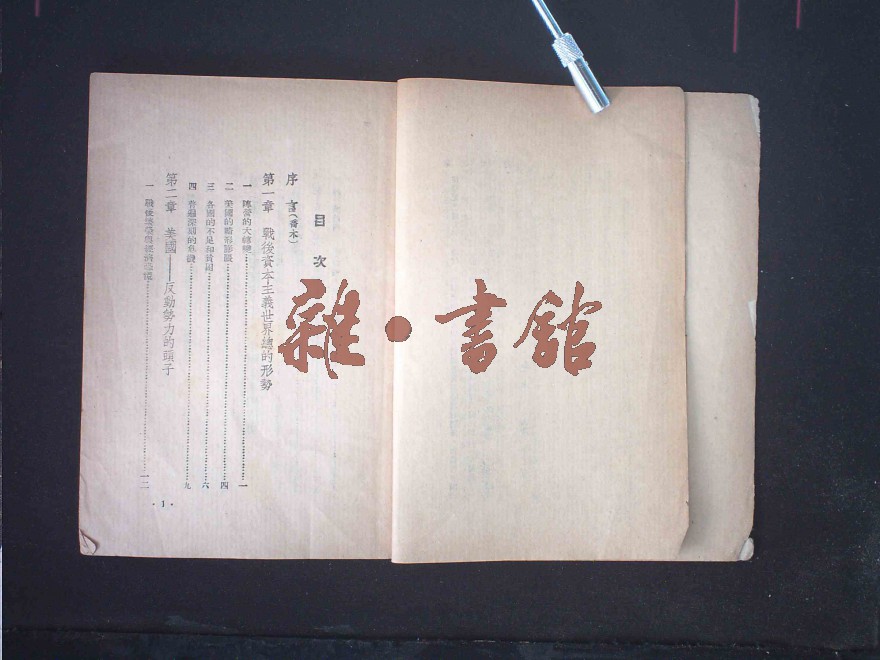 目次
序言(喬木)
第一章 戰後資本主義世界總的形勢
一 陣營的大轉變 一
二 美國的畸形膨脹 四
三 各國的不足和貧困 六
四 普遍深刻的危機 九
第二章 美國——反動勢力的頭子
一 戰後 一二
·1·
雜·書館